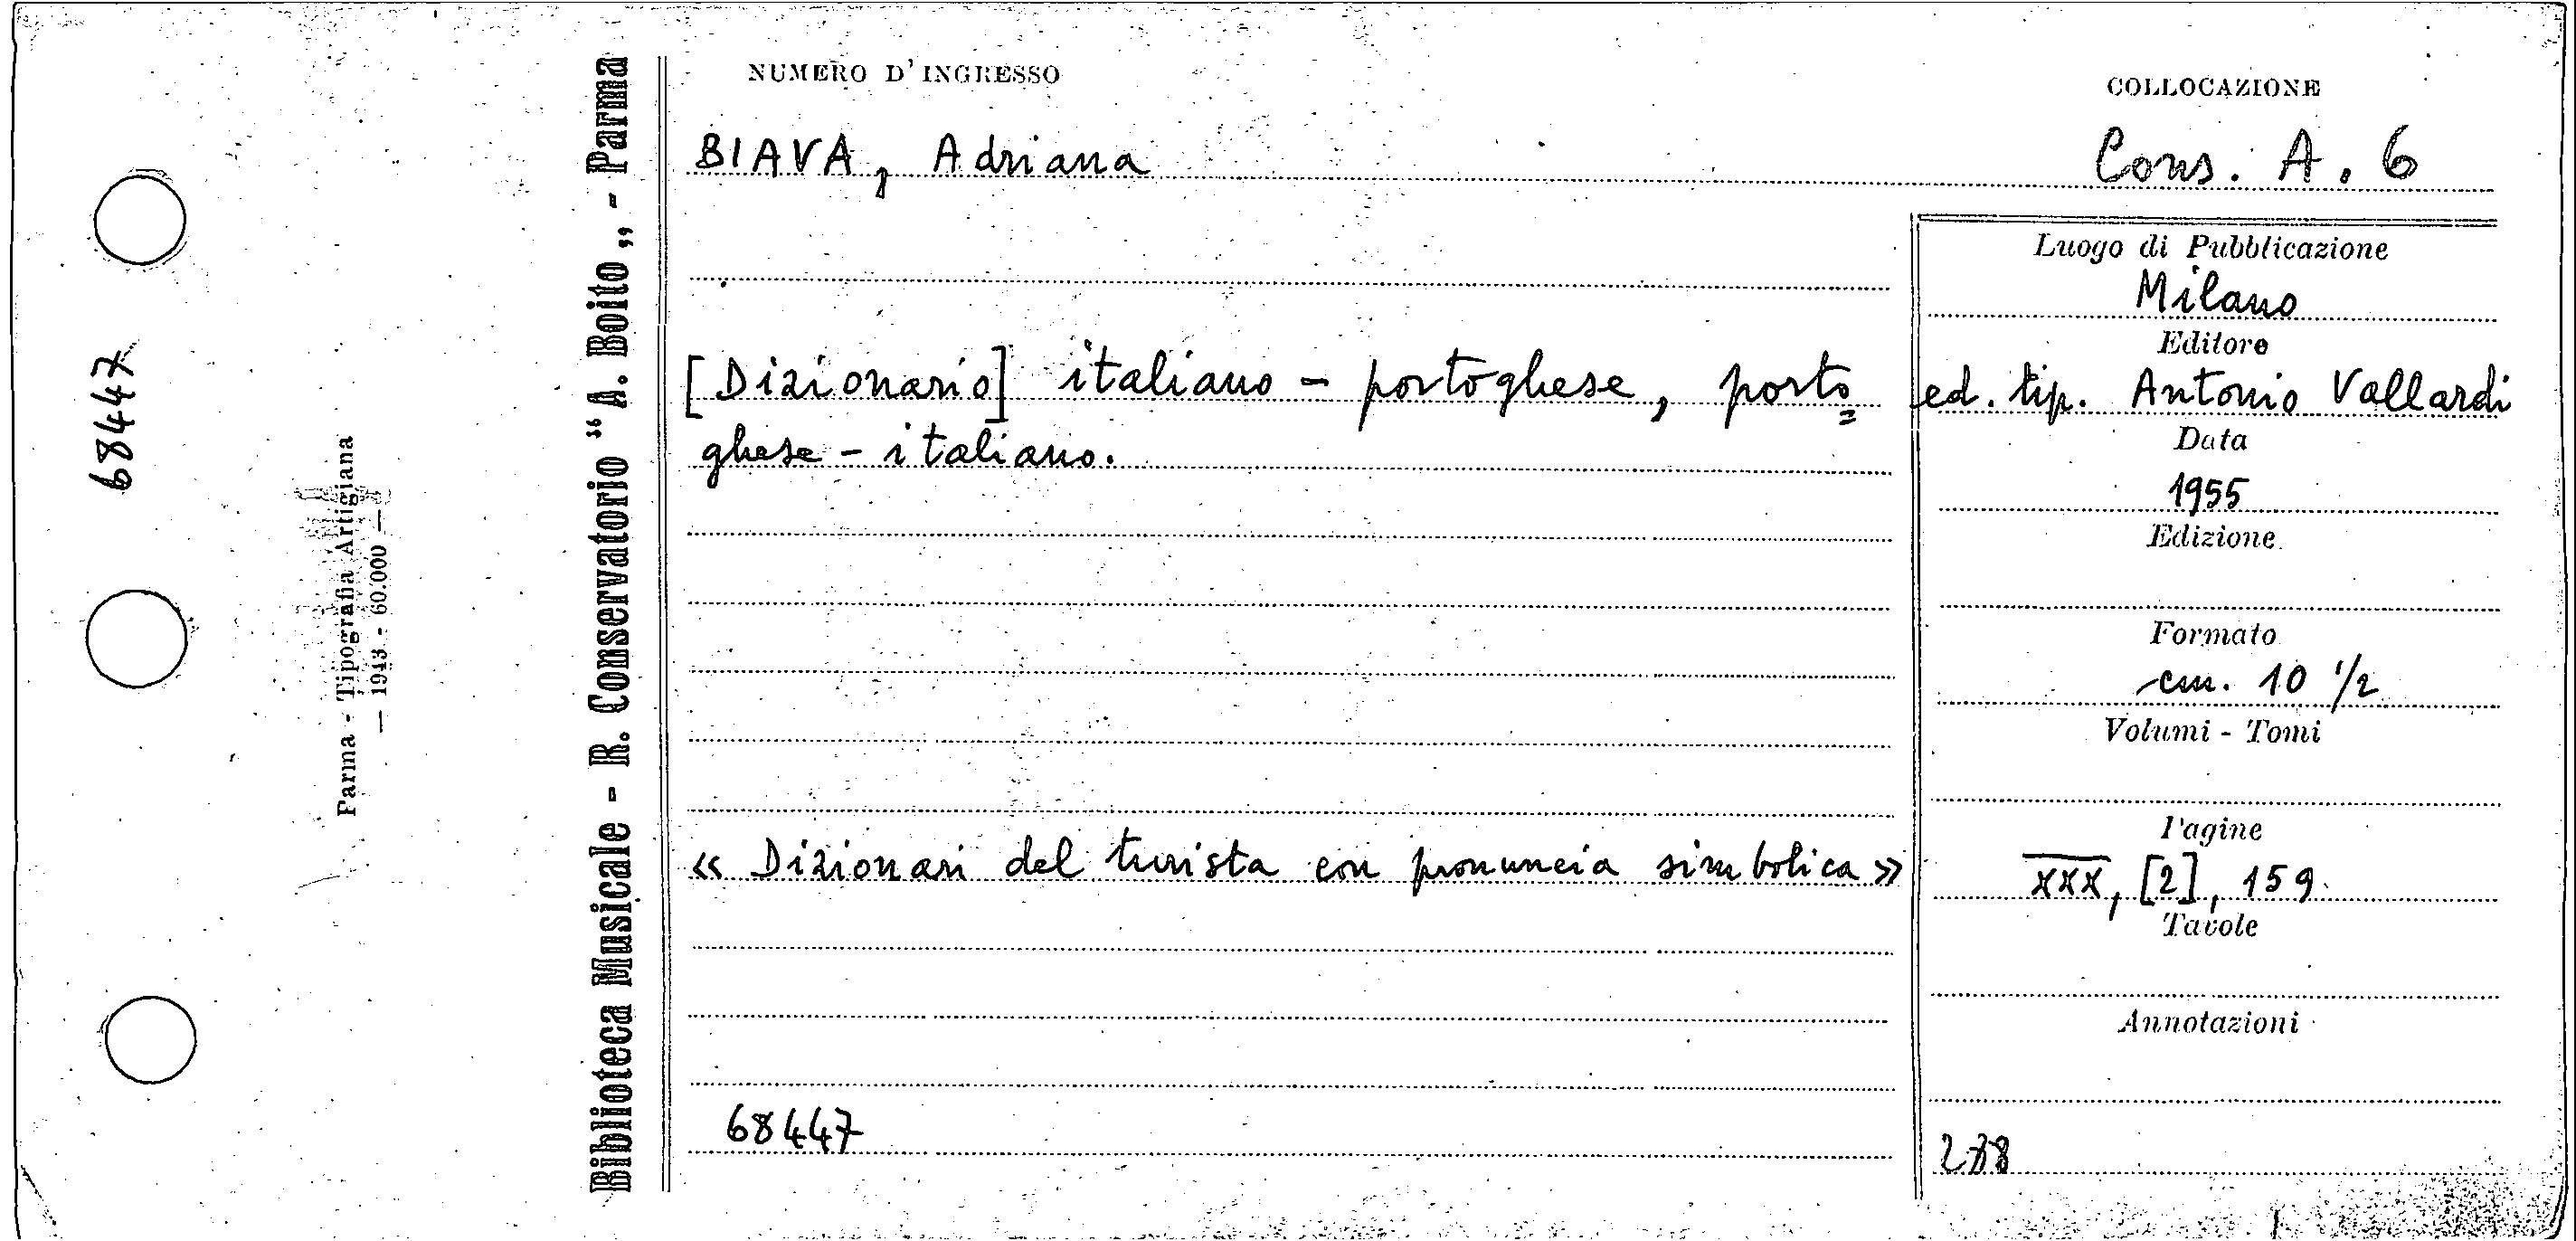 68447
Parma - Tipografia Artigiana
— 1943 - 60.000 —
Biblioteca Musicale - R. Conservatorio “A. Boito„ - Parma
NUMERO D'INGRESSO
COLLOCAZIONE
BIAVA, Adriana
Cons. A. 6
[Dizionario] italiano - portoghese, porto=
ghese - italiano.
« Dizionari del turista con pronuncia simbolica »
68447
Luogo di Pubblicazione
Milano
Editore
ed. tip. Antonio Vallardi
Data
1955
Edizione
Formato
cm. 10 1/2
Volumi - Tomi
Pagine
XXX, [2], 159
Tavole
Annotazioni